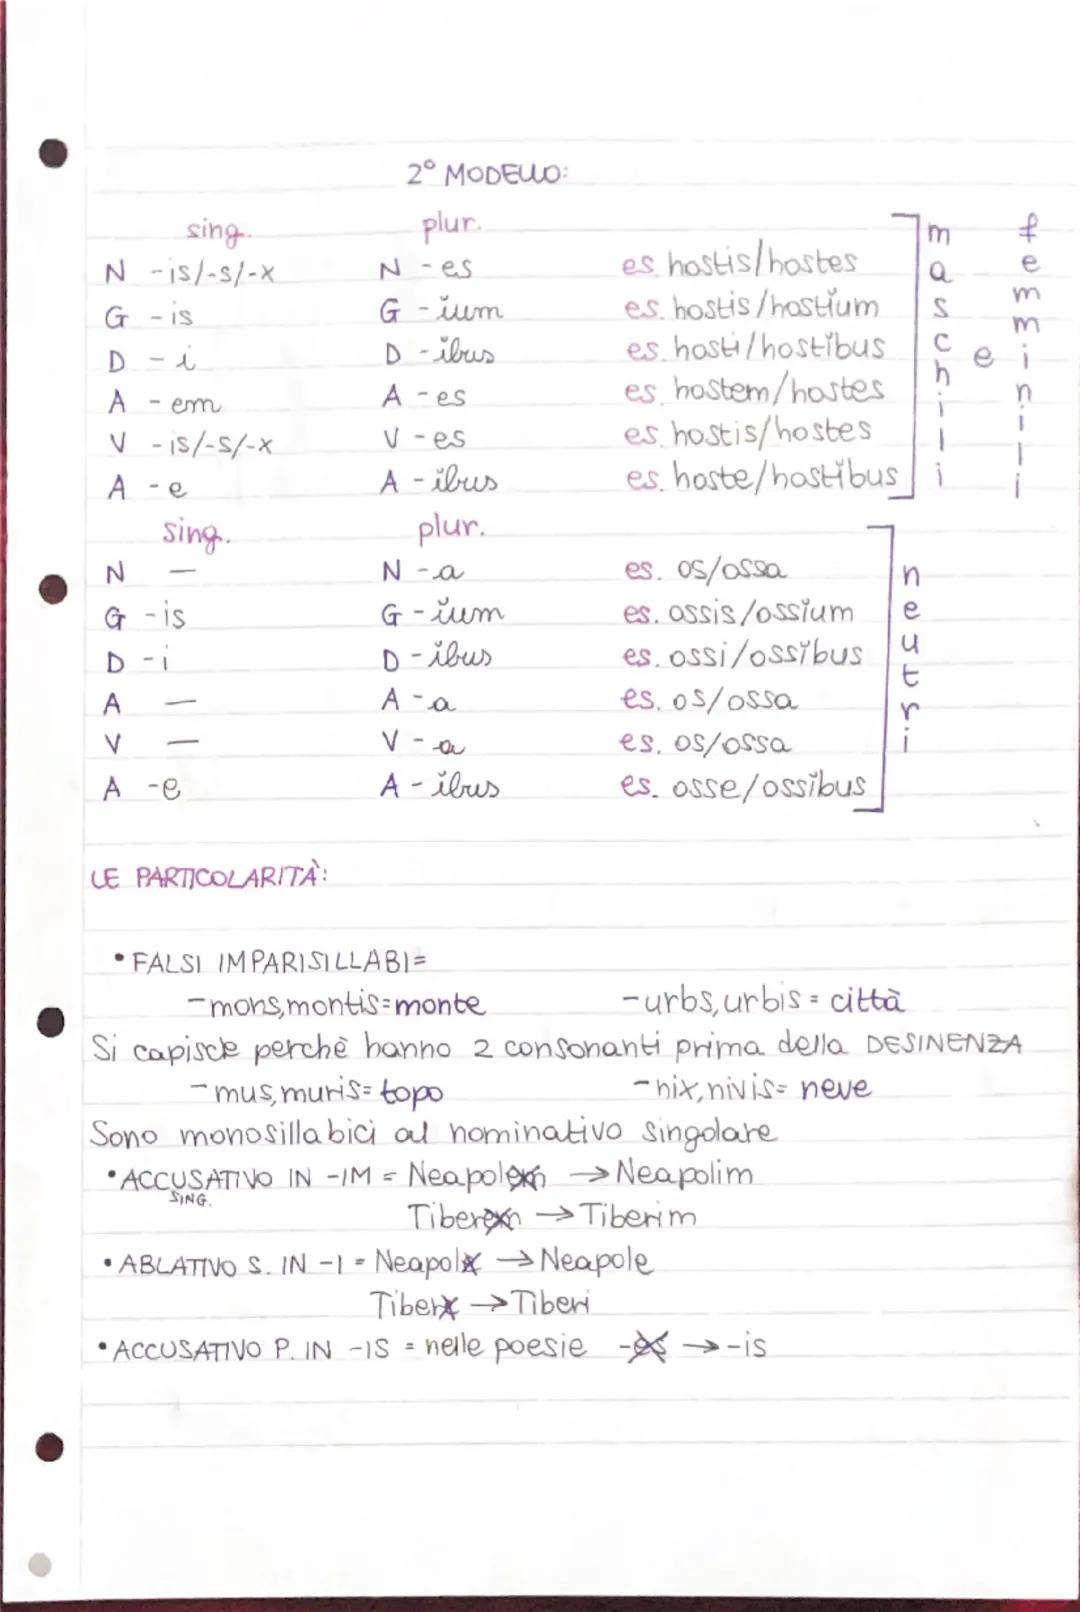 2° MODELLO:
sing. plur.
N -is/-s/-x N -es es. hostis/hostes
G -is G -ĭum es. hostis/hostĭum
D -i D -ĭbus es. hosti/hostĭbus
A -em A -es es. hostem/hostes
V -is/-s/-x V -es es. hostis/hostes
A -e A -ĭbus es. hoste/hostĭbus
maschili e femminili
sing. plur.
N — N -a es. os/ossa
G -is G -ĭum es. ossis/ossĭum
D -i D -ĭbus es. ossi/ossĭbus
A — A -a es. os/ossa
V — V -a es. os/ossa
A -e A -ĭbus es. osse/ossĭbus
neutri
LE PARTICOLARITÀ:
• FALSI IMPARISILLABI=
-mons,montis=monte -urbs,urbis= città
Si capisce perchè hanno 2 consonanti prima della DESINENZA
-mus,muris= topo -nix,nivis= neve
Sono monosillabici al nominativo singolare
• ACCUSATIVO IN -IM = Neapolem → Neapolim
SING.
Tiberem → Tiberim
• ABLATIVO S. IN -I = Neapol → Neapole
Tiber → Tiberi
• ACCUSATIVO P. IN -IS = nelle poesie -es → -is